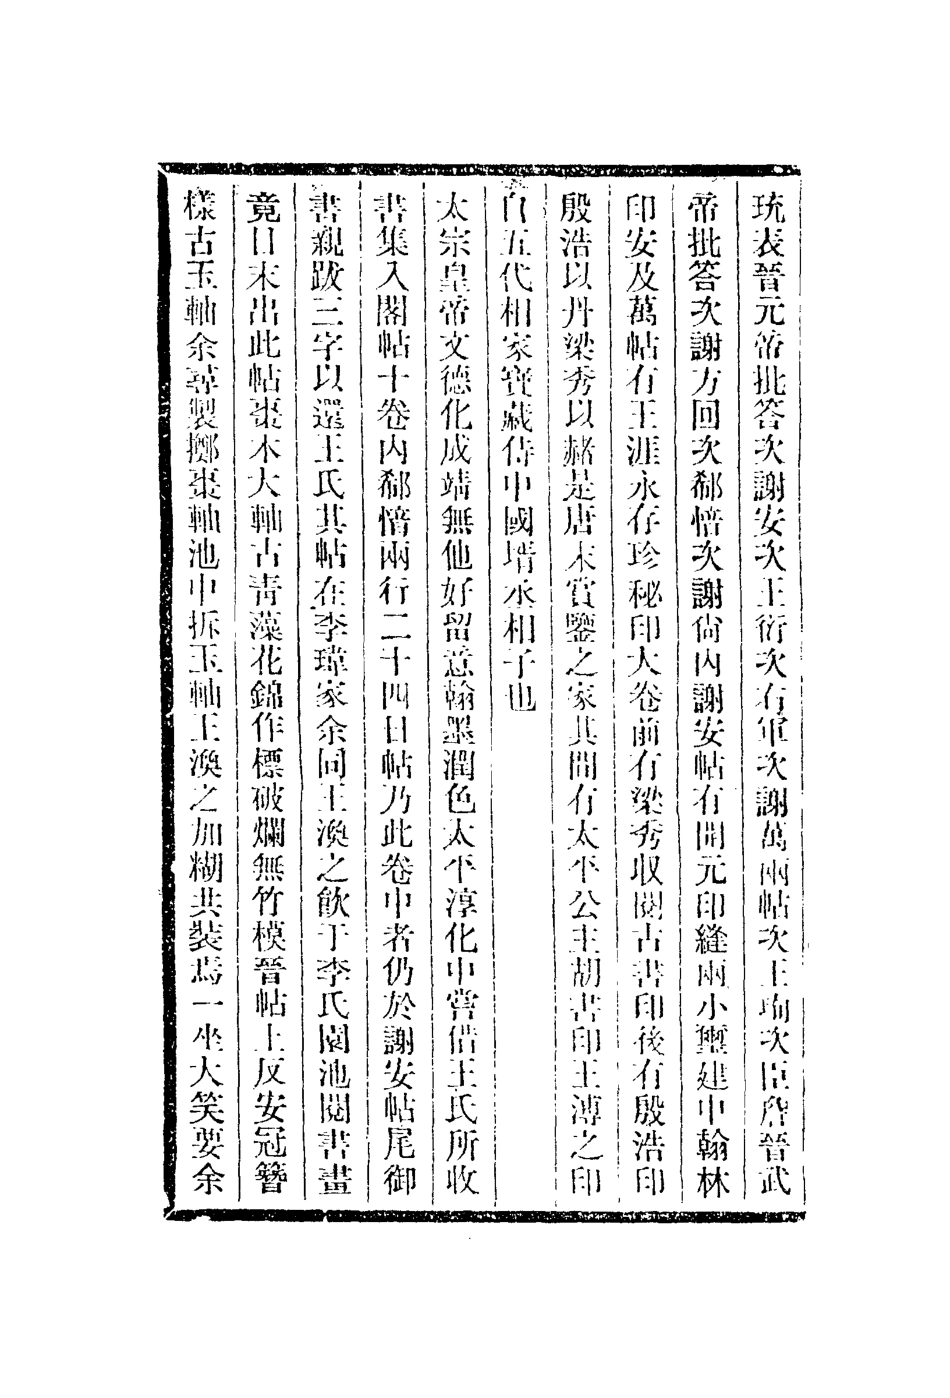 琉表晉元帝批答次謝安次王衍次右軍次謝萬兩帖次王珣次臣詹晉武
帝批答次謝方回次郗愔次謝尙內謝安帖有開元印縫兩小璽建中翰林
印安及萬帖有王涯永存珍秘印大卷前有梁秀收閱古書印後有殷浩印
殷浩以丹梁秀以赭是唐末賞鑒之家其間有太平公主胡書印王溥之印
自五代相家寶藏侍中國壻丞相子也
太宗皇帝文德化成靖無他好留意翰墨潤色太平淳化中嘗借王氏所收
書集入閣帖十卷內郗愔兩行二十四日帖乃此卷中者仍於謝安帖尾御
書親跋三字以還王氏其帖在李瑋家余同王渙之飮于李氏園池閱書畫
竟日末出此帖棗木大軸古靑藻花錦作標破爛無竹模晉帖上反安冠簪
樣古玉軸余尋製擲棗軸池中拆玉軸王渙之加糊共裝焉一坐大笑要余